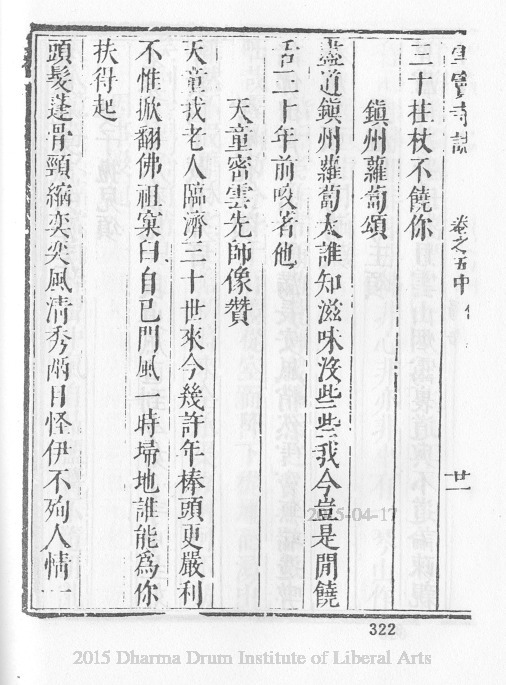 雪竇寺誌 卷之五中 廿一
三十拄杖不饒你
鎮州蘿蔔頌
盡道鎮州蘿蔔大誰知滋味沒些些我今豈是閒饒
舌二十年前咬著他
天童密雲先師像贊
天童我老人臨濟三十世來今幾許年棒頭更嚴利
不惟掀翻佛祖窠臼自己門風一時埽地誰能為你
扶得起
頭髮蓬骨頸縮奕奕風清秀兩目怪伊不殉人情一
2015-04-17
322
2015 Dharma Drum Institute of Liberal Arts